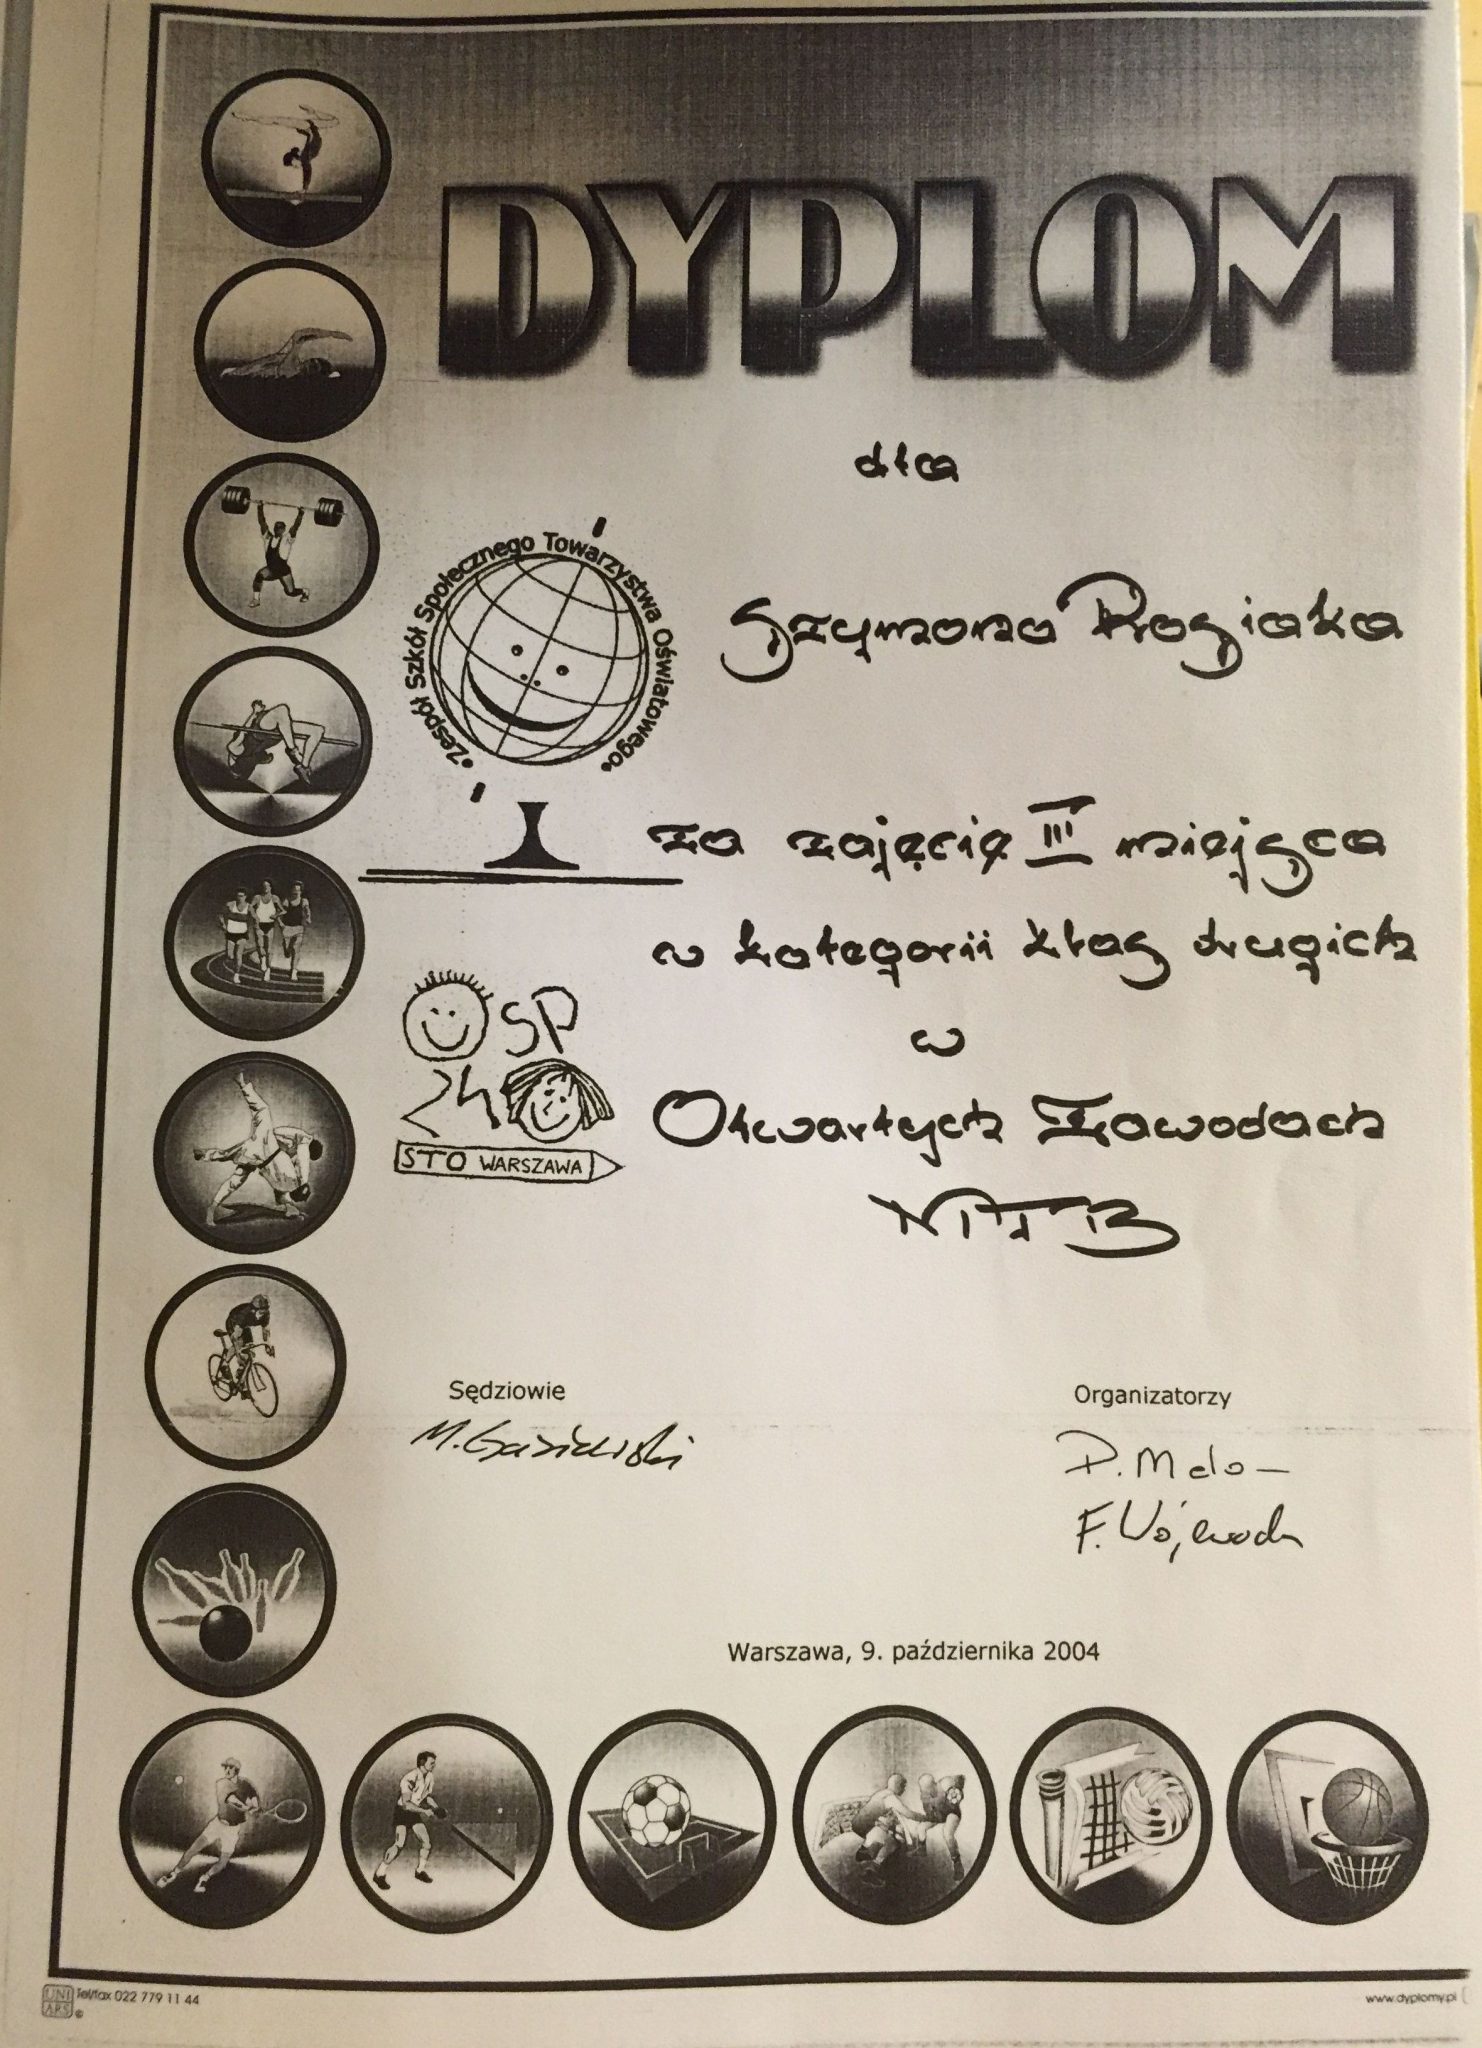 DYPLOM
dla
•Zespół Szkół Społecznego Towarzystwa Oświatowego•
Szymona Rosiaka
za zajęcie III miejsca
w kategorii klas drugich
w
Otwartych Zawodach
SP
24
STO WARSZAWA
Sędziowie
Organizatorzy
M.
D. Melo
F. Wojewoda
Warszawa, 9. października 2004
UNI
ARS
©
Tel/fax 022 779 11 44
www.dyplomy.pl